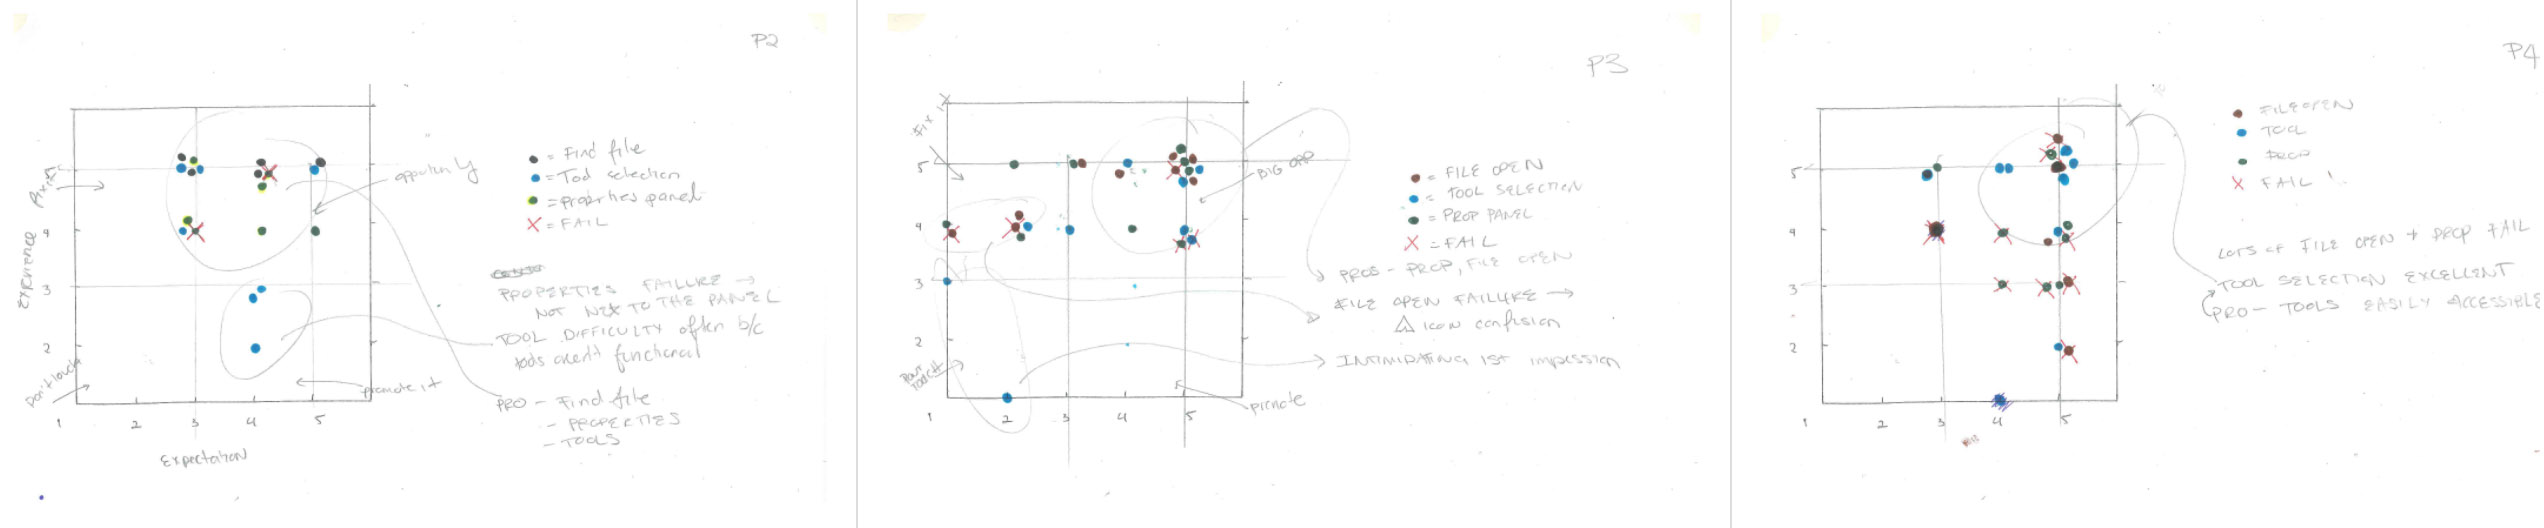 P2
5
4
3
2
1 2 3 4 5
Experience
Expectation
Don't touch
promote it
= Find file
= Tool selection
= properties panel
= FAIL
PROPERTIES FAILURE →
NOT NEXT TO THE PANEL
TOOL DIFFICULTY often b/c
tools arent functional
PRO - Find file
- PROPERTIES
- TOOLS
P3
Fix it
5
4
3
2
1 2 3 4 5
BIG OPP
= FILE OPEN
= TOOL SELECTION
= PROP PANEL
= FAIL
PROS - PROP, FILE OPEN
FILE OPEN FAILURE →
△ ICON confusion
INTIMIDATING 1ST impression
P4
5
4
3
2
1 2 3 4 5
FILE OPEN
TOOL
PROP
FAIL
LOTS OF FILE OPEN + PROP FAIL
TOOL SELECTION EXCELLENT
PRO - TOOLS EASILY ACCESSIBLE